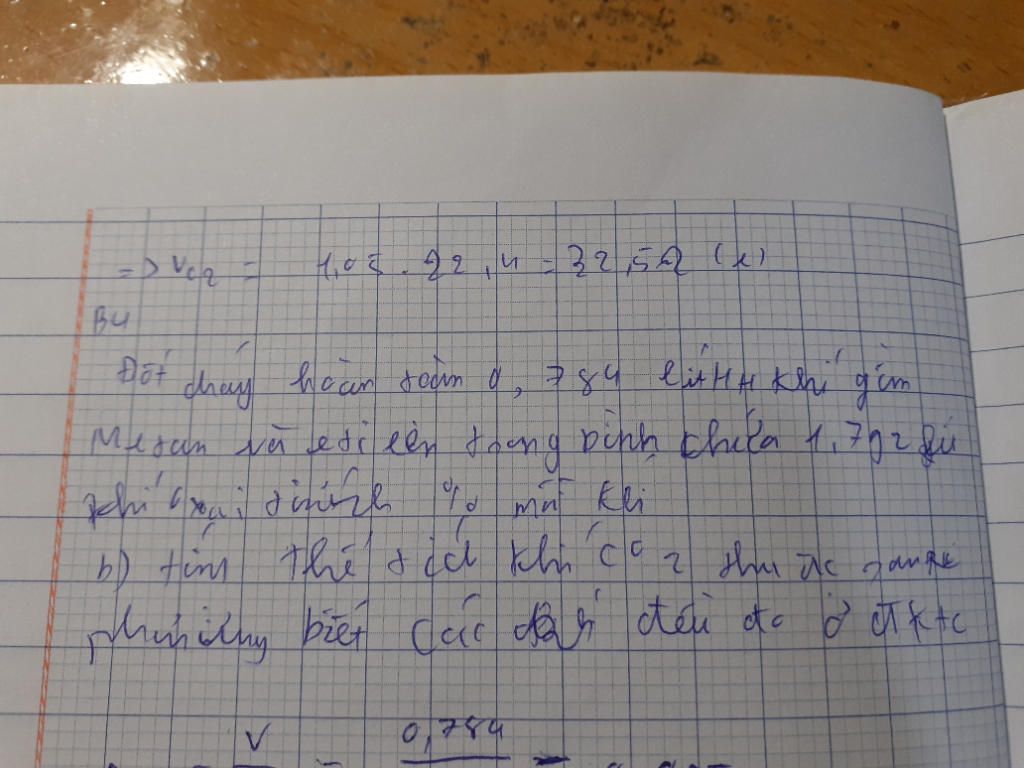 => VC2 = 1,05 . 22,4 = 32,52 (l)
B4
Đốt cháy hoàn toàn 0,784 lít HH khí gồm
Metan và etilen trong bình chứa 1,792 lít
khí oxi tính % mỗi khí
b) tính thể tích khí CO2 thu đc sau
phản ứng biết các khí đều đo ở đktc
V 0,784